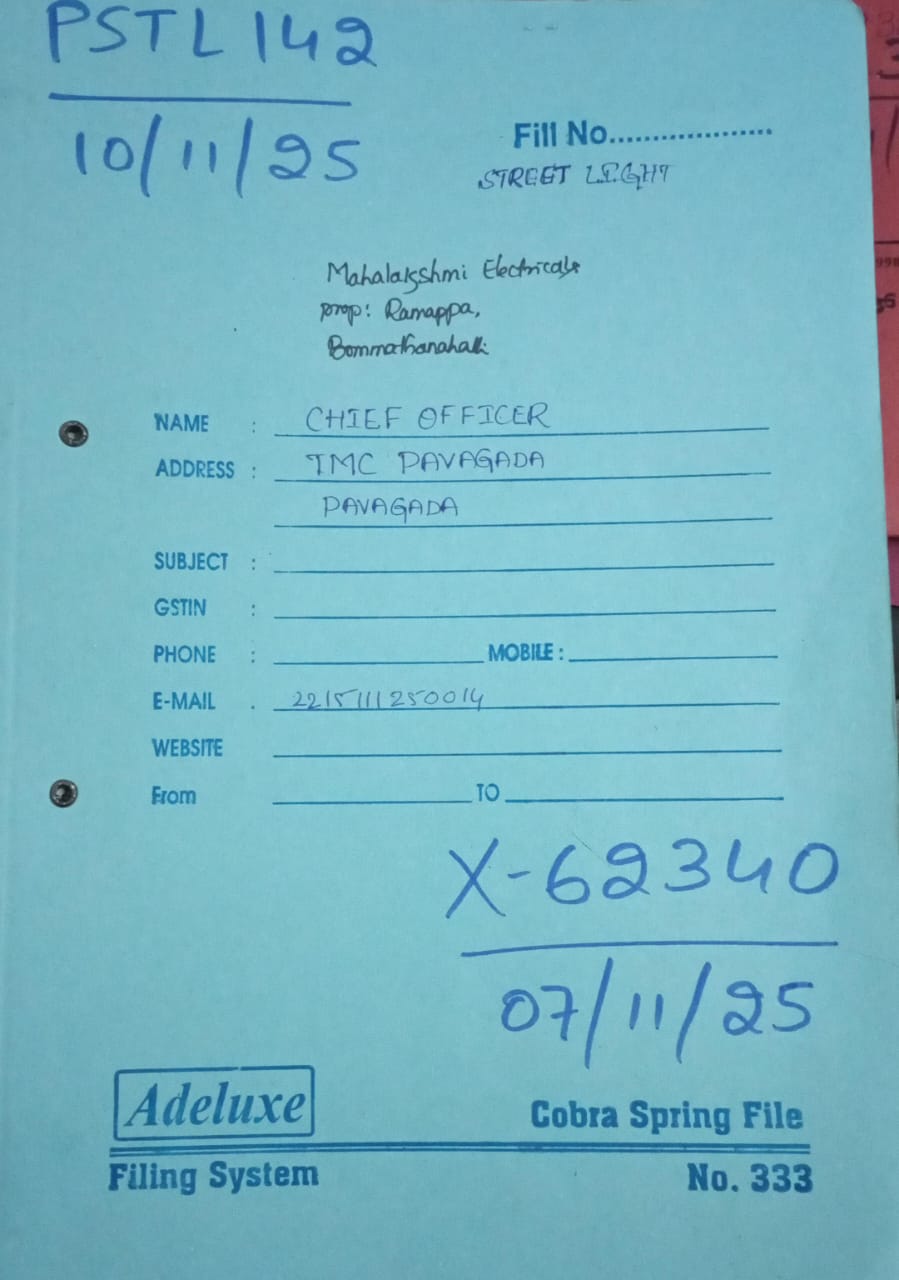 PSTL 142
10/11/25
Fill No...................
STREET LIGHT
Mahalakshmi Electricals
prop: Ramappa,
Bommathanahalli
NAME : CHIEF OFFICER
ADDRESS : TMC PAVAGADA
PAVAGADA
SUBJECT :
GSTIN :
PHONE : MOBILE :
E-MAIL . 2215111250014
WEBSITE
From TO
X-62340
07/11/25
Adeluxe
Cobra Spring File
Filing System
No. 333